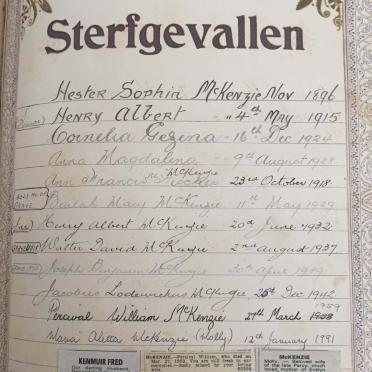 Sterfgevallen
Hester Sophia McKenzie Nov 1896
Henry Albert " 4th May 1915
Cornelia Gezena - 16th Dec 1924
Anna Magdalena " 9th August 1928
Ann Francis McKenzie 23rd October 1918
Beulah Mary McKenzie 11th May 1929
Henry Albert McKenzie 20th June 1932
Walter David McKenzie 2nd August 1937
Joseph Benjamin McKenzie 20th April 1939
Jacobus Lodewickus McKenzie 25th Dec 1942
1959
Percival William McKenzie 27th March
Maria Aletta McKenzie (Molly) 12th January 1991
KENMUIR FRED
Our darling Husband,
McKENZIE
Molly. - Beloved wife
of the late Percy, much